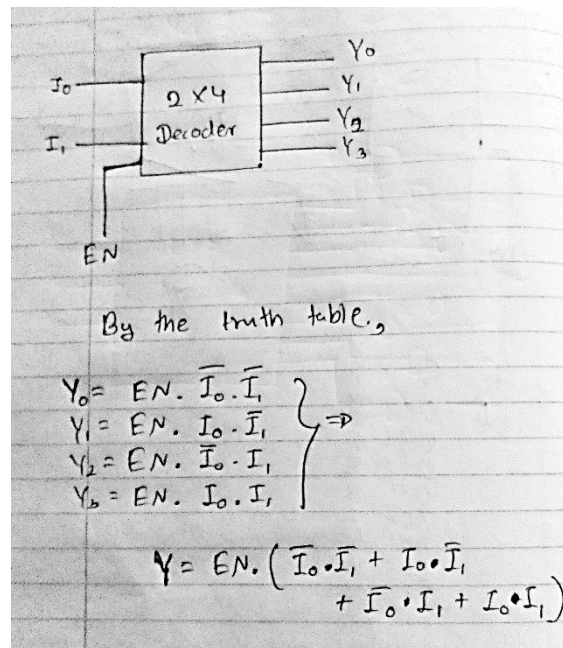 Y₀
I₀
Y₁
2 X 4
Decoder
Y₂
I₁
Y₃
EN
By the truth table,
Y₀ = EN. I̅₀. I̅₁
Y₁ = EN. I₀. I̅₁
Y₂ = EN. I̅₀. I₁
Y₃ = EN. I₀. I₁
⇒
Y = EN. ( I̅₀•I̅₁ + I₀•I̅₁
+ I̅₀•I₁ + I₀•I₁ )